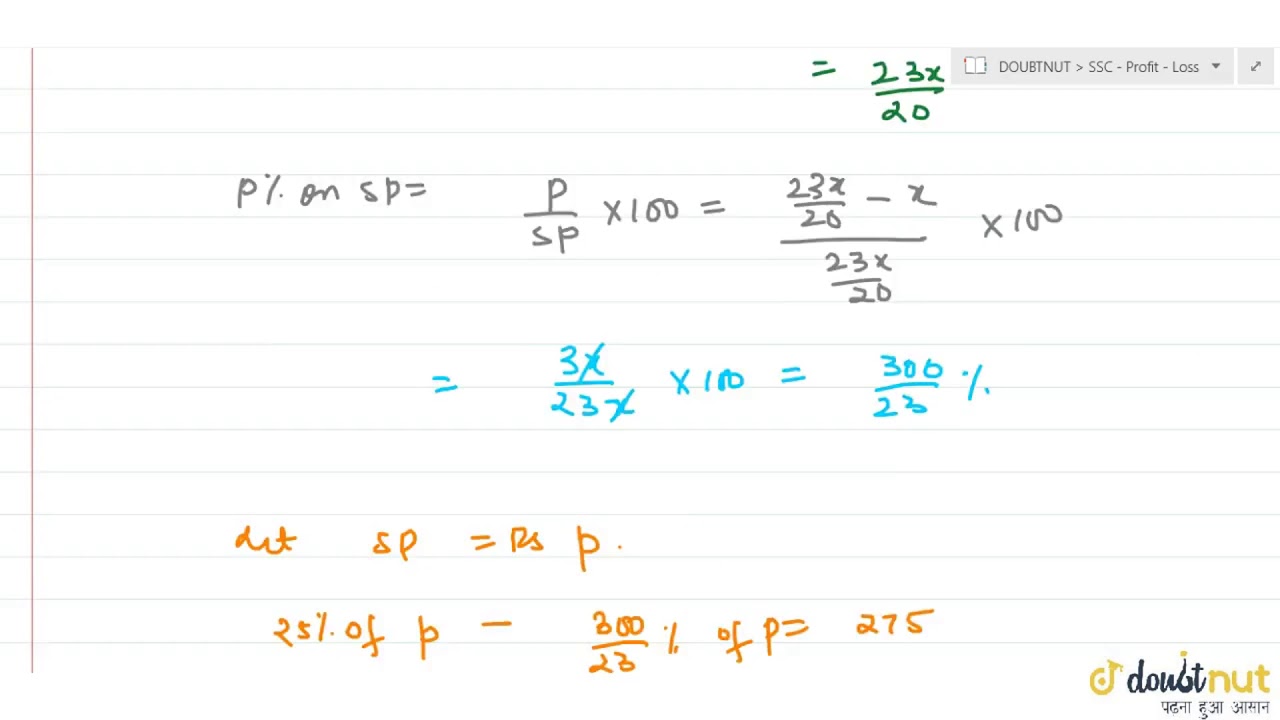 = 23x/20
DOUBTNUT > SSC - Profit - Loss
P% on SP = P/SP × 100 = (23x/20 - x)/(23x/20) × 100
= 3x/23x × 100 = 300/23 %
Let SP = Rs p.
25% of p - 300/23 % of p = 275
doubtnut
पढ़ना हुआ आसान